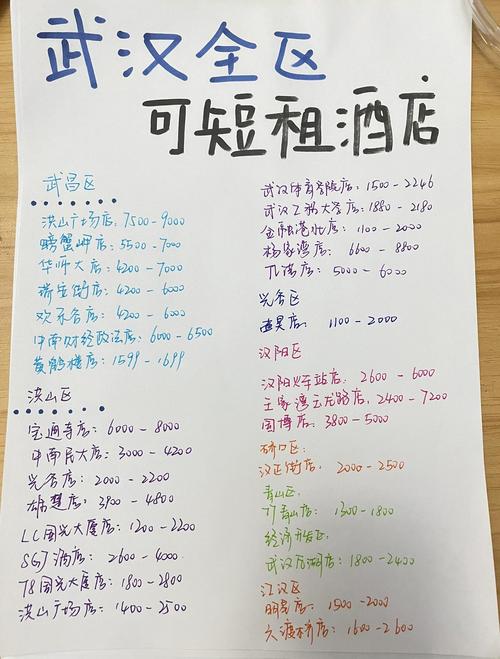 武汉全区
可短租酒店
武昌区
洪山广场店：7500-9000
螃蟹岬店：5500-7000
华师大店：4200-7000
瑞安街店：4200-6000
欢乐谷店：4200-6000
中南财经政法店：6000-6500
黄鹤楼店：1599-1699
洪山区
宝通寺店：6000-8000
中南民大店：3000-4200
光谷店：2000-2200
店：3800-4800
LC国光大厦店：1200-2200
SGJ酒店：2600-4000
T8国光大厦店：1800-2800
洪山广场店：1400-2500
武汉体育学院店：1500-2246
武汉工程大学店：1880-2180
金融港北店：1100-2000
杨家湾店：6600-8800
店：5000-6000
光谷区
店：1100-2000
汉阳区
汉阳火车站店：2600-6000
王家湾云龙路店：2400-7200
国博店：3800-5000
硚口区：
汉正街店：2000-2500
青山区：
青山店：1300-1800
经济开发区：
武汉万湖店：1800-2400
江汉区
店：1500-2000
六渡桥店：1600-2600